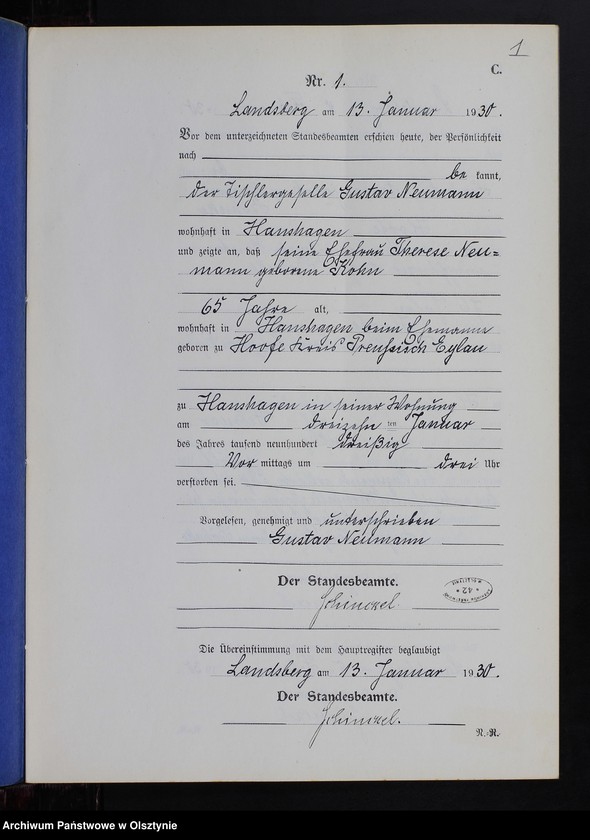 1
C.
Nr. 1.
Landsberg am 13. Januar 1930.
Vor dem unterzeichneten Standesbeamten erschien heute, der Persönlichkeit
nach
be kannt,
der Tischlergeselle Gustav Neumann
wohnhaft in Hanshagen
und zeigte an, daß seine Ehefrau Therese Neu=
mann geborene Kohn
65 Jahre alt,
wohnhaft in Hanshagen beim Ehemann
geboren zu Hoofe Kreis Preußisch Eylau
zu Hanshagen in seiner Wohnung
am dreizehn ten Januar
des Jahres tausend neunhundert dreißig
Vor mittags um drei Uhr
verstorben sei.
Vorgelesen, genehmigt und unterschrieben
Gustav Neumann
Der Standesbeamte.
Schinckel.
* 42 *
Die Übereinstimmung mit dem Hauptregister beglaubigt
Landsberg am 13. Januar 1930.
Der Standesbeamte.
Schinckel.
Archiwum Państwowe w Olsztynie